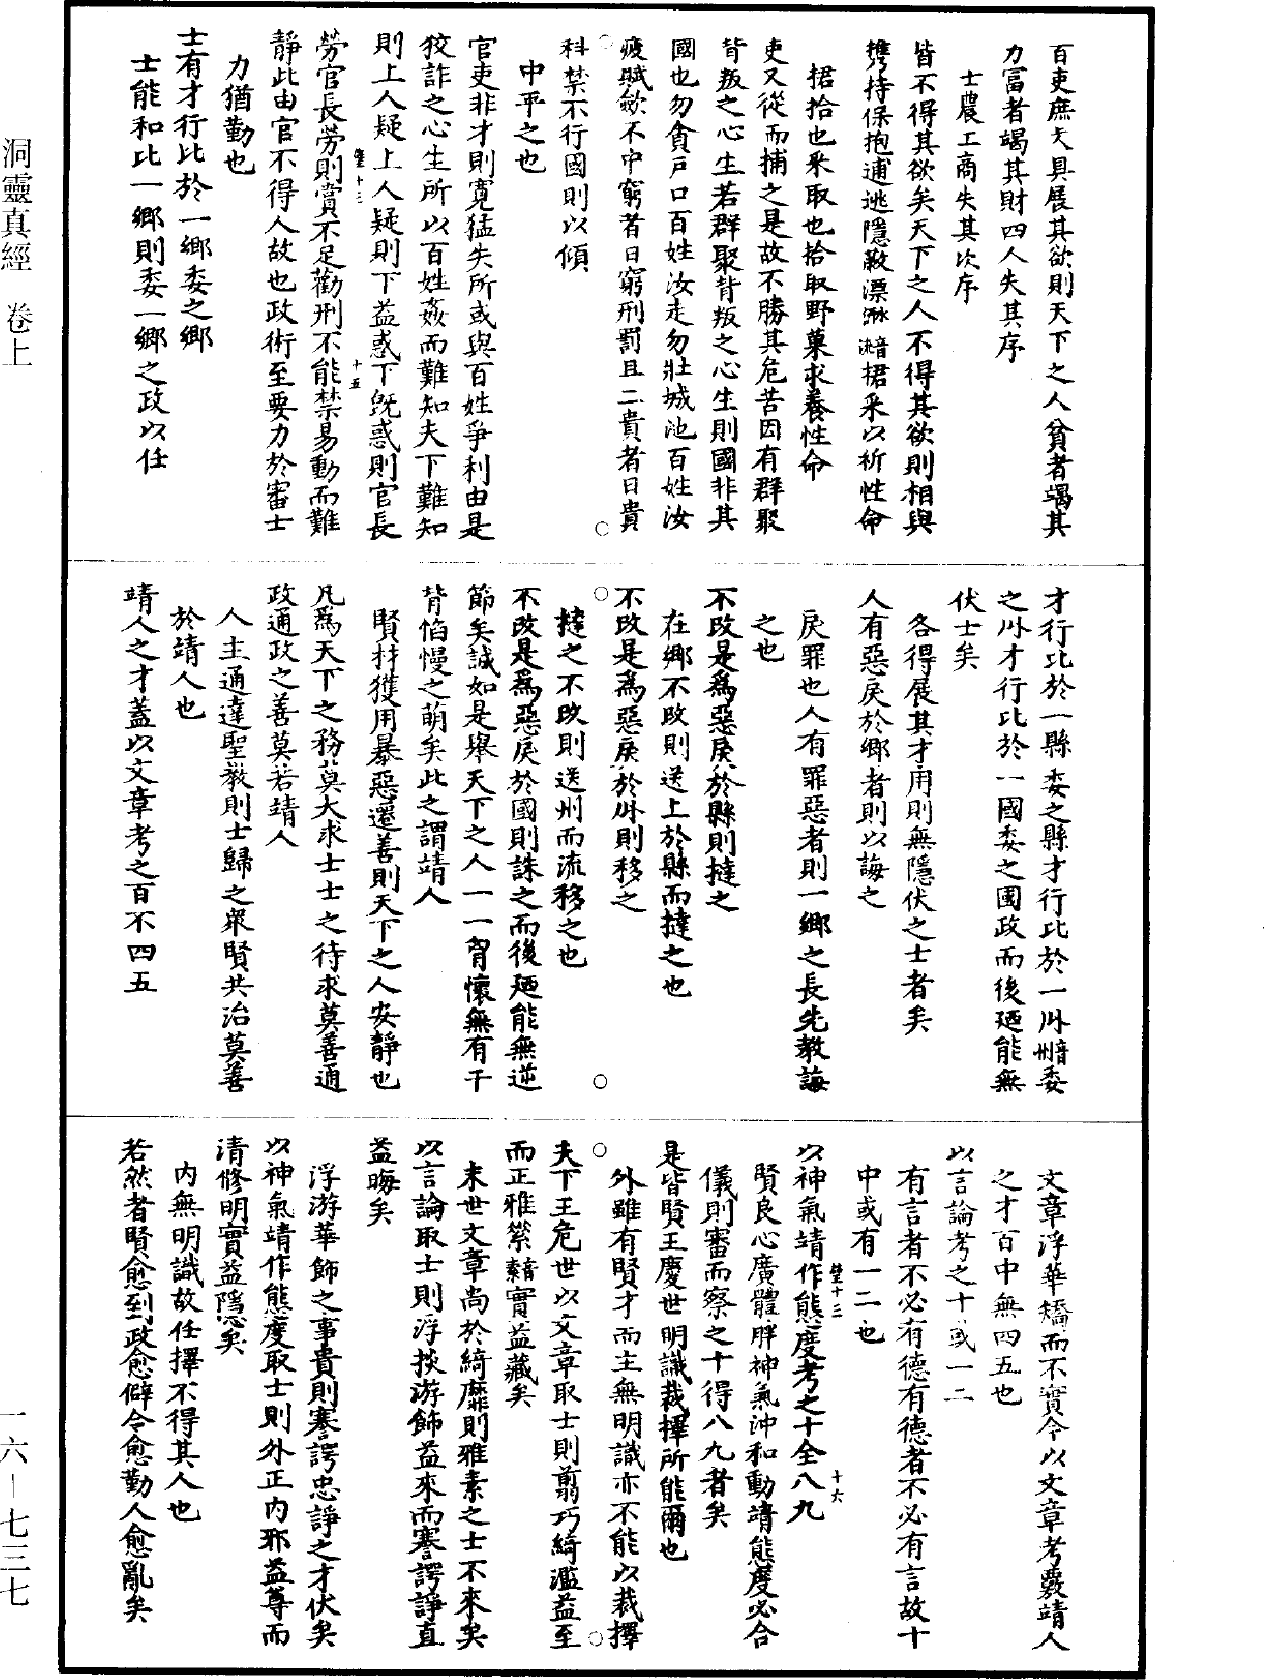 百吏庶夫具展其欲則天下之人貧者竭其
力富者竭其財四人失其序
士農工商失其次序
皆不得其欲矣天下之人不得其欲則相與
攜持保抱逋逃隱蔽漂㴇音流捃采以祈性命
捃拾也采取也拾取野菓求養性命
吏又從而捕之是故不勝其危苦因有群聚
背叛之心生若群聚背叛之心生則國非其
國也勿貪戶口百姓汝走勿壯城池百姓汝
疲賦歛不中窮者日窮刑罰且二貴者日貴
科禁不行國則以傾
中平之也
官吏非才則寬猛失所或與百姓爭利由是
狡詐之心生所以百姓姦而難知夫下難知
則上人疑上人疑則下益惑下既惑則官長
勞官長勞則賞不足勸刑不能禁易動而難
靜此由官不得人故也政術至要力於審士
力猶勤也
士有才行比於一鄉委之鄉
士能和比一鄉則委一鄉之政以任
才行比於一縣委之縣才行比於一㳘音州委
之㳘才行比於一國委之國政而後廼能無
伏士矣
各得展其才用則無隱伏之士者矣
人有惡戾於鄉者則以誨之
戾罪也人有罪惡者則一鄉之長先教誨
之也
不改是為惡戾於縣則撻之
在鄉不改則送上於縣而撻之也
不改是為惡戾於㳘則移之
撻之不改則送州而流移之也
不改是為惡戾於國則誅之而後廼能無逆
節矣誠如是舉天下之人一一胷懷無有干
背慆慢之萌矣此之謂靖人
賢材獲用暴惡遷善則天下之人安靜也
凡為天下之務莫大求士士之待求莫善通
政通政之善莫若靖人
人主通達聖教則士歸之衆賢共治莫善
於靖人也
靖人之才蓋以文章考之百不四五
文章浮華矯而不實今以文章考覈靖人
之才百中無四五也
以言論考之十或一二
有言者不必有德有德者不必有言故十
中或有一二也
以神氣靖作態度考之十全八九
賢良心廣體胖神氣沖和動靖態度必合
儀則審而察之十得八九者矣
是皆賢王慶世明識裁擇所能爾也
外雖有賢才而主無明識亦不能以裁擇
夫下王危世以文章取士則翦巧綺濫益至
而正雅䋤音素實益藏矣
末世文章尚於綺靡則雅素之士不來矣
以言論取士則浮掞游飾益來而謇諤諍直
益晦矣
浮游華飾之事貴則謇諤忠諍之才伏矣
以神氣靖作態度取士則外正內邪益尊而
清修明實益隱矣
內無明識故任擇不得其人也
若然者賢愈到政愈僻令愈勤人愈亂矣
洞靈真經　卷上
一六－七三七